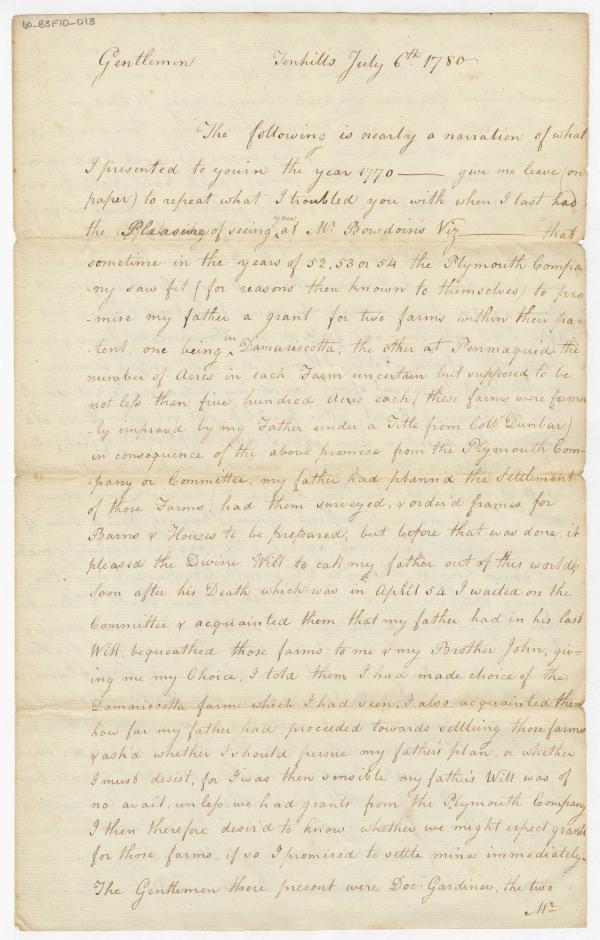 60-B3F10-013
Gentlemen Tenhills July 6th. 1780
The following is nearly a narration of what
I presented to you in the year 1770 — give me leave (on
paper) to repeat what I troubled you with when I last had
the (Pleasure of seeing you at Mr. Bowdoin's Viz — that
sometime in the years of 52, 53 or 54 the Plymouth Compa
-ny saw fit (for reasons then known to themselves) to pro
-mise my father a grant for two farms within their pa-
tent, one being in Damariscotta, the other at Penmaquid the
number of Acres in each Farm uncertain but supposed to be
not less than five hundred Acres each (these farms were forme
-ly improvd by my Father under a Title from Coll. Dunbar)
in consequence of the above promise from the Plymouth Com-
-pany or Committee, my father had plann'd the Settlement
of those Farms, had them surveyed, & order'd frames for
Barns & Houses to be prepared; but before that was done, it
pleased the Divine Will to call my father out of this world,
soon after his Death which was in April 54 I waited on the
Committee & acquainted them that my father had in his last
Will, bequeathed those farms to me & my Brother John, giv-
ing me my Choice, I told them I had made choice of the
Damariscotta farm which I had seen, I also acquainted them
how far my father had proceeded towards settling those farms
& ask'd whether I should pursue my father's plan, or whether
I must desist, for I was then sensible my father's Will was of
no avail, unless we had grants from the Plymouth Company
I then therefore desir'd to know whether we might expect grants
for those farms, if so I promised to settle mine immediately-
The Gentlemen there present were Doc. Gardiner, the two
Mr